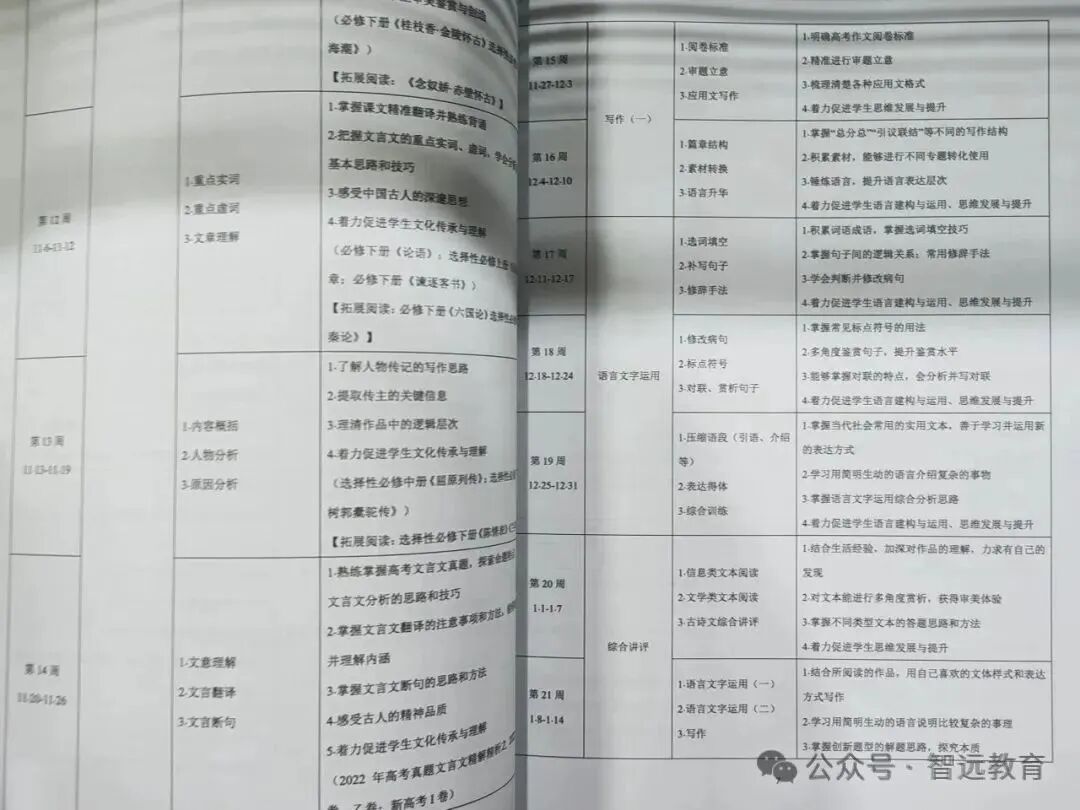 （必修下册《桂枝香·金陵怀古》选择性
海潮》）
【拓展阅读：《念奴娇·赤壁怀古》】
第 12 周
11-6-11-12
1-重点实词
2-重点虚词
3-文章理解
1-掌握课文精准翻译并熟练背诵
2-把握文言文的重点实词、虚词，学会分
基本思路和技巧
3-感受中国古人的深邃思想
4-着力促进学生文化传承与理解
（必修下册《论语》；选择性必修上册
章；必修下册《谏逐客书》）
【拓展阅读：必修下册《六国论》选择性必
秦论》】
第 13 周
11-13-11-19
1-内容概括
2-人物分析
3-原因分析
1-了解人物传记的写作思路
2-提取传主的关键信息
3-理清作品中的逻辑层次
4-着力促进学生文化传承与理解
（选择性必修中册《屈原列传》；选择性必
树郭橐驼传》）
【拓展阅读：选择性必修下册《陈情表》
第 14 周
11-20-11-26
1-文意理解
2-文言翻译
3-文言断句
1-熟练掌握高考文言文真题，探索命题
文言文分析的思路和技巧
2-掌握文言文翻译的注意事项和方法，
并理解内涵
3-掌握文言文断句的思路和方法
4-感受古人的精神品质
5-着力促进学生文化传承与理解
（2022 年高考真题文言文精解精析
卷、乙卷，新高考 1 卷）
第 15 周
11-27-12-3
写作（一）
1-阅卷标准
2-审题立意
3-应用文写作
1-明确高考作文阅卷标准
2-精准进行审题立意
3-梳理清楚各种应用文格式
4-着力促进学生思维发展与提升
第 16 周
12-4-12-10
1-篇章结构
2-素材转换
3-语言升华
1-掌握“总分总”“引议联结”等不同的写作结构
2-积累素材，能够进行不同专题转化使用
3-锤炼语言，提升语言表达层次
4-着力促进学生语言建构与运用、思维发展与提升
第 17 周
12-11-12-17
语言文字运用
1-选词填空
2-补写句子
3-修辞手法
1-积累词语成语，掌握选词填空技巧
2-掌握句子间的逻辑关系；常用修辞手法
3-学会判断并修改病句
4-着力促进学生语言建构与运用、思维发展与提升
第 18 周
12-18-12-24
1-修改病句
2-标点符号
3-对联、赏析句子
1-掌握常见标点符号的用法
2-多角度鉴赏句子，提升鉴赏水平
3-能够掌握对联的特点，会分析并写对联
4-着力促进学生语言建构与运用、思维发展与提升
第 19 周
12-25-12-31
1-压缩语段（引语、介绍
等）
2-表达得体
3-综合训练
1-掌握当代社会常用的实用文本，善于学习并运用新
的表达方式
2-学习用简明生动的语言介绍复杂的事物
3-掌握语言文字运用综合分析思路
4-着力促进学生语言建构与运用、思维发展与提升
第 20 周
1-1-1-7
综合讲评
1-信息类文本阅读
2-文学类文本阅读
3-古诗文综合讲评
1-结合生活经验，加深对作品的理解，力求有自己的
发现
2-对文本能进行多角度赏析，获得审美体验
3-掌握不同类型文本的答题思路和方法
4-着力促进学生思维发展与提升
第 21 周
1-8-1-14
1-语言文字运用（一）
2-语言文字运用（二）
3-写作
1-结合所阅读的作品，用自己喜欢的文体样式和表达
方式写作
2-学习用简明生动的语言说明比较复杂的事理
3-掌握创新题型的解题思路，探究本质
公众号·智远教育